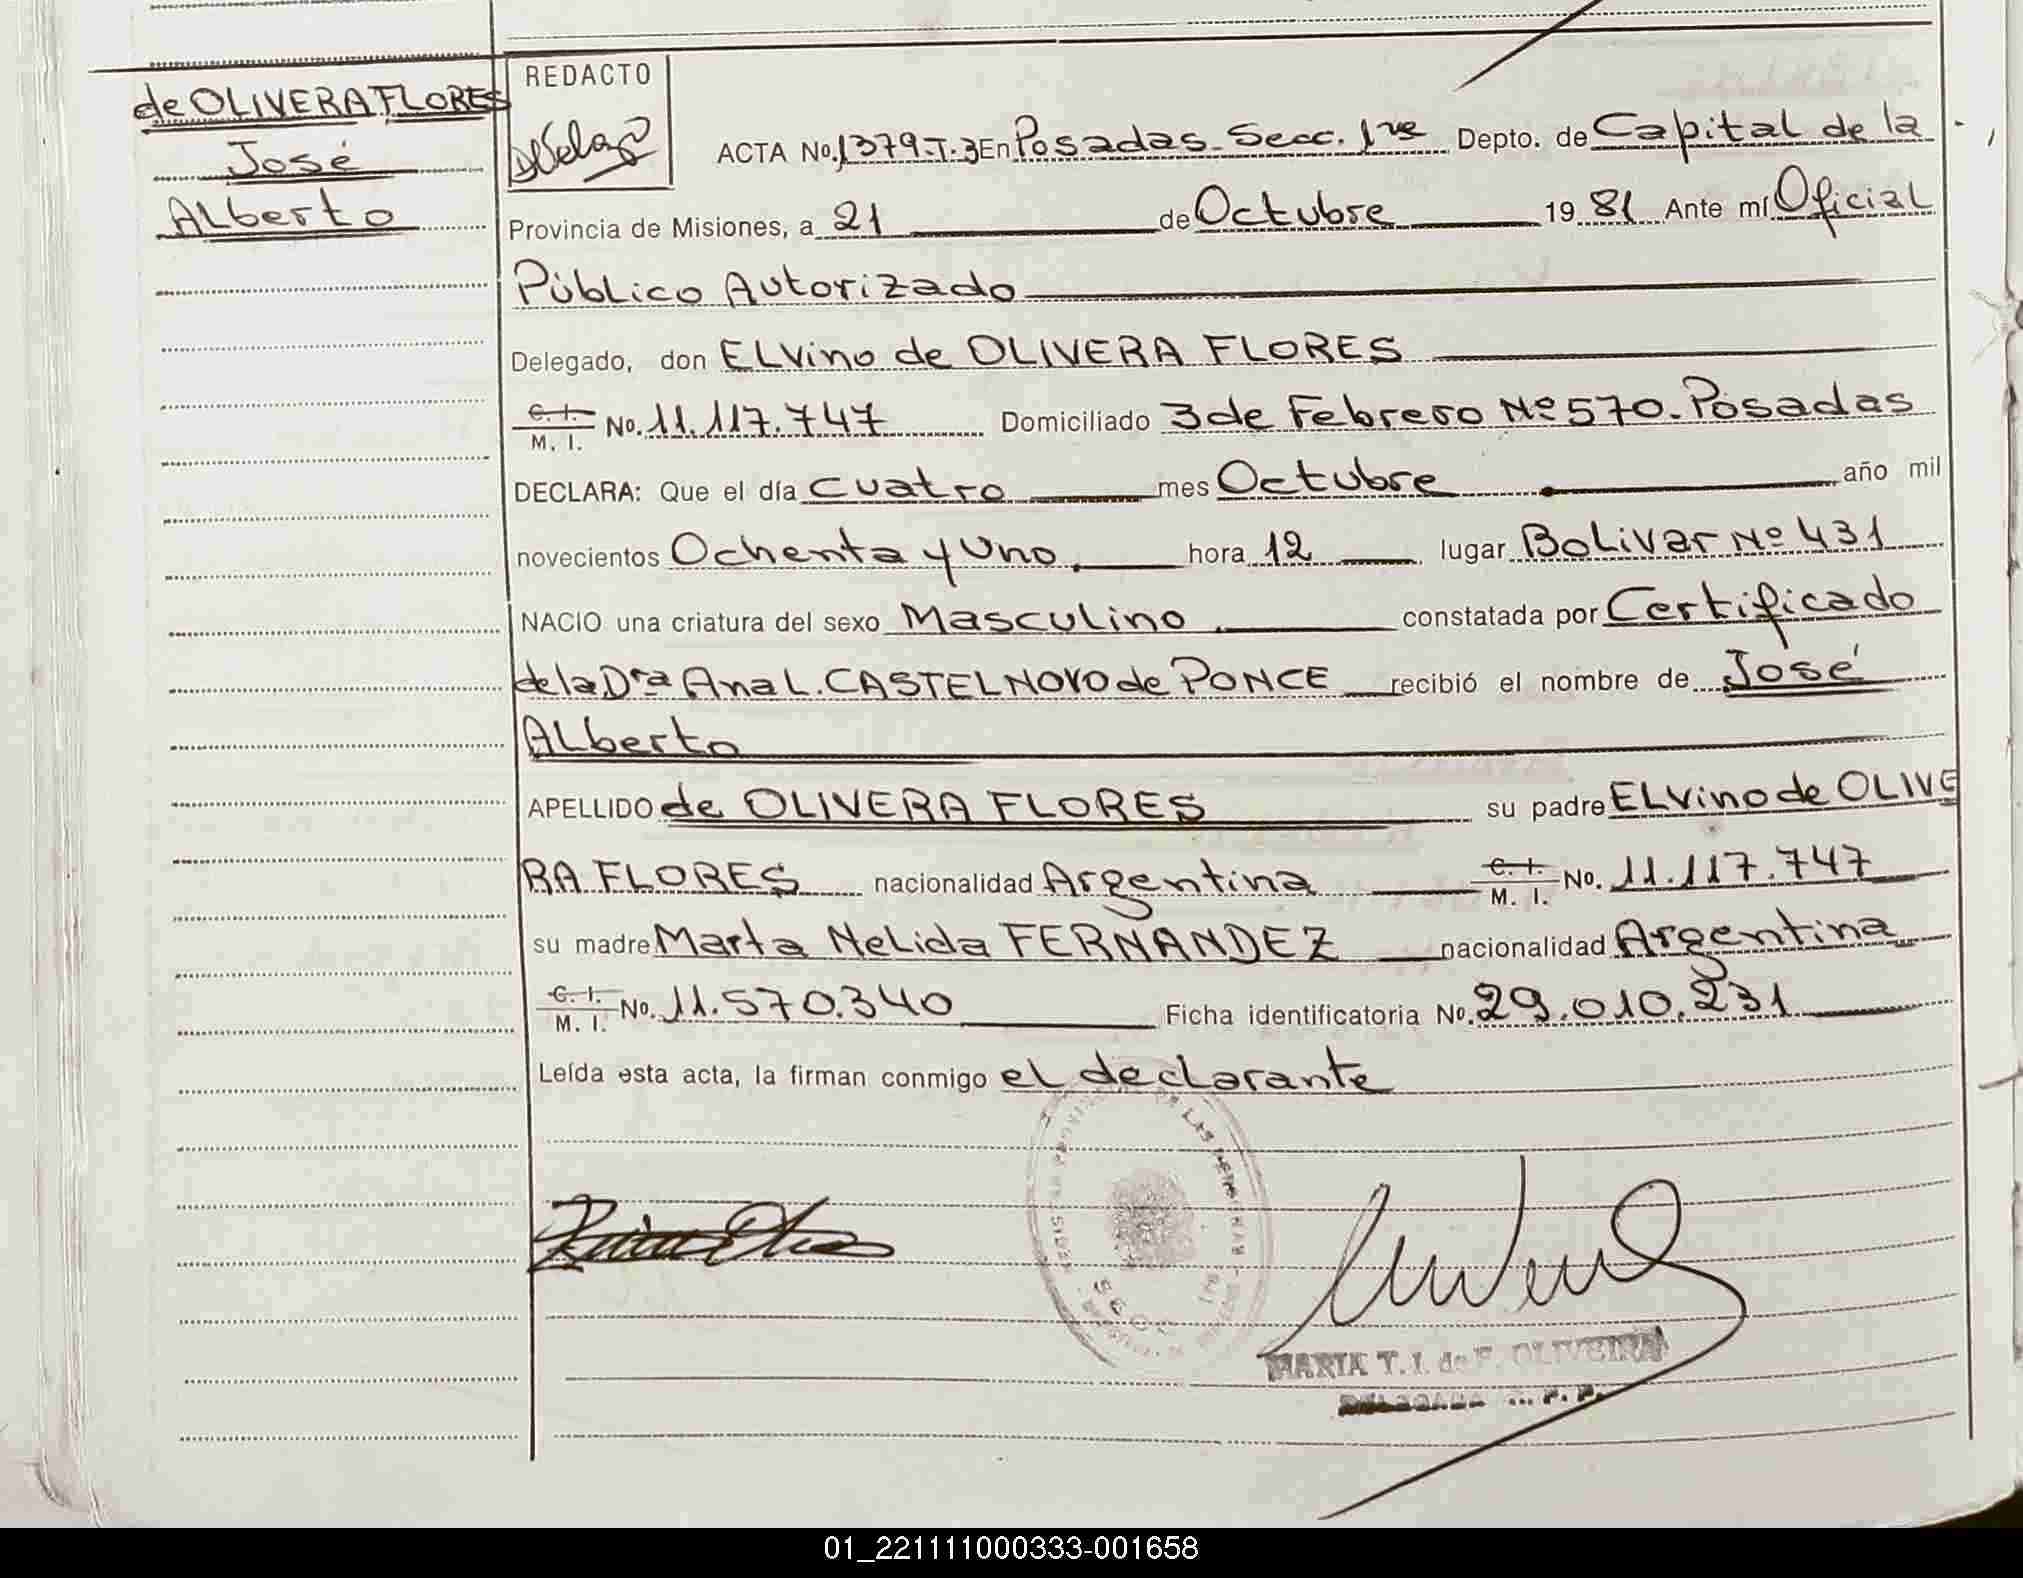 de OLIVERA FLORES
José
Alberto
REDACTO
ACTA No. 1379-T.3 En Posadas-Secc. 1ra Depto. de Capital de la
Provincia de Misiones, a 21 de Octubre 19 81 Ante mí Oficial
Público Autorizado
Delegado, don ELvino de OLIVERA FLORES
C. I. M. I. No. 11.117.747 Domiciliado 3 de Febrero Nº 570. Posadas
DECLARA: Que el día cuatro mes Octubre año mil
novecientos Ochenta y Uno hora 12 lugar Bolivar Nº 431
NACIO una criatura del sexo Masculino constatada por Certificado
de la Dra Ana L. CASTELNOVO de PONCE recibió el nombre de José
Alberto
APELLIDO de OLIVERA FLORES su padre ELvino de OLIVE
RA FLORES nacionalidad Argentina C. I. M. I. No. 11.117.747
su madre Marta Nelida FERNANDEZ nacionalidad Argentina
C. I. M. I. No. 11.570.340 Ficha identificatoria No. 29.010.231
Leída esta acta, la firman conmigo el declarante
MARIA T. I. de F. OLIVEIRA
01_221111000333-001658